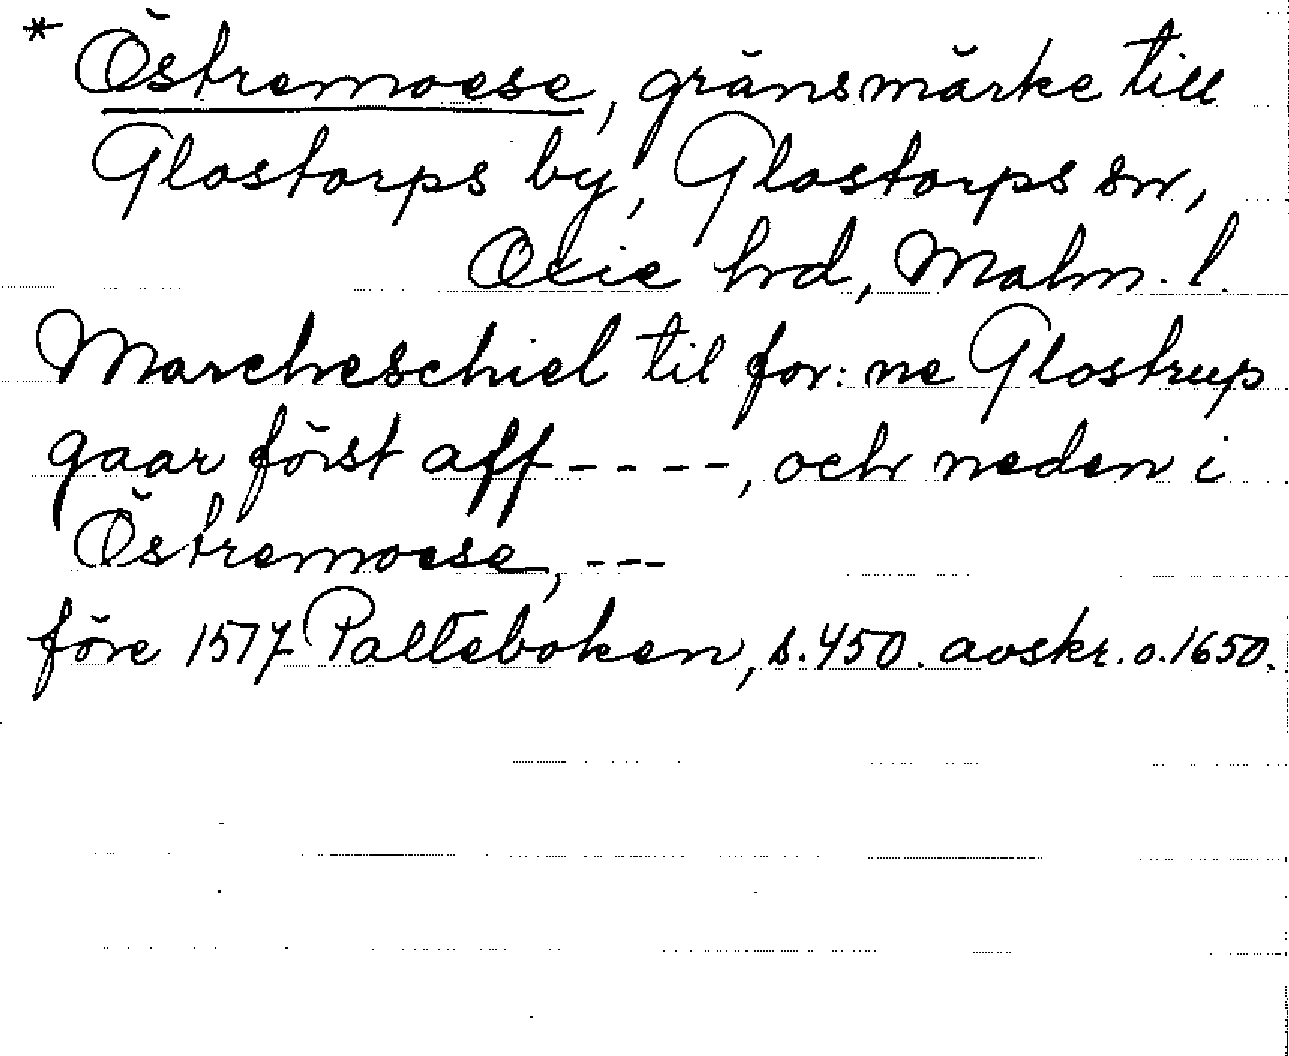 * Östremoese, gränsmärke till
Glostorps by, Glostorps sn,
Oxie hrd, Malm. l.
Marcheschiel til for: ne Glostrup
gaar först aff - - - -, och neden i
Östremoese, - - -
före 1577 Palteboken, s. 450. avskr. o. 1650.